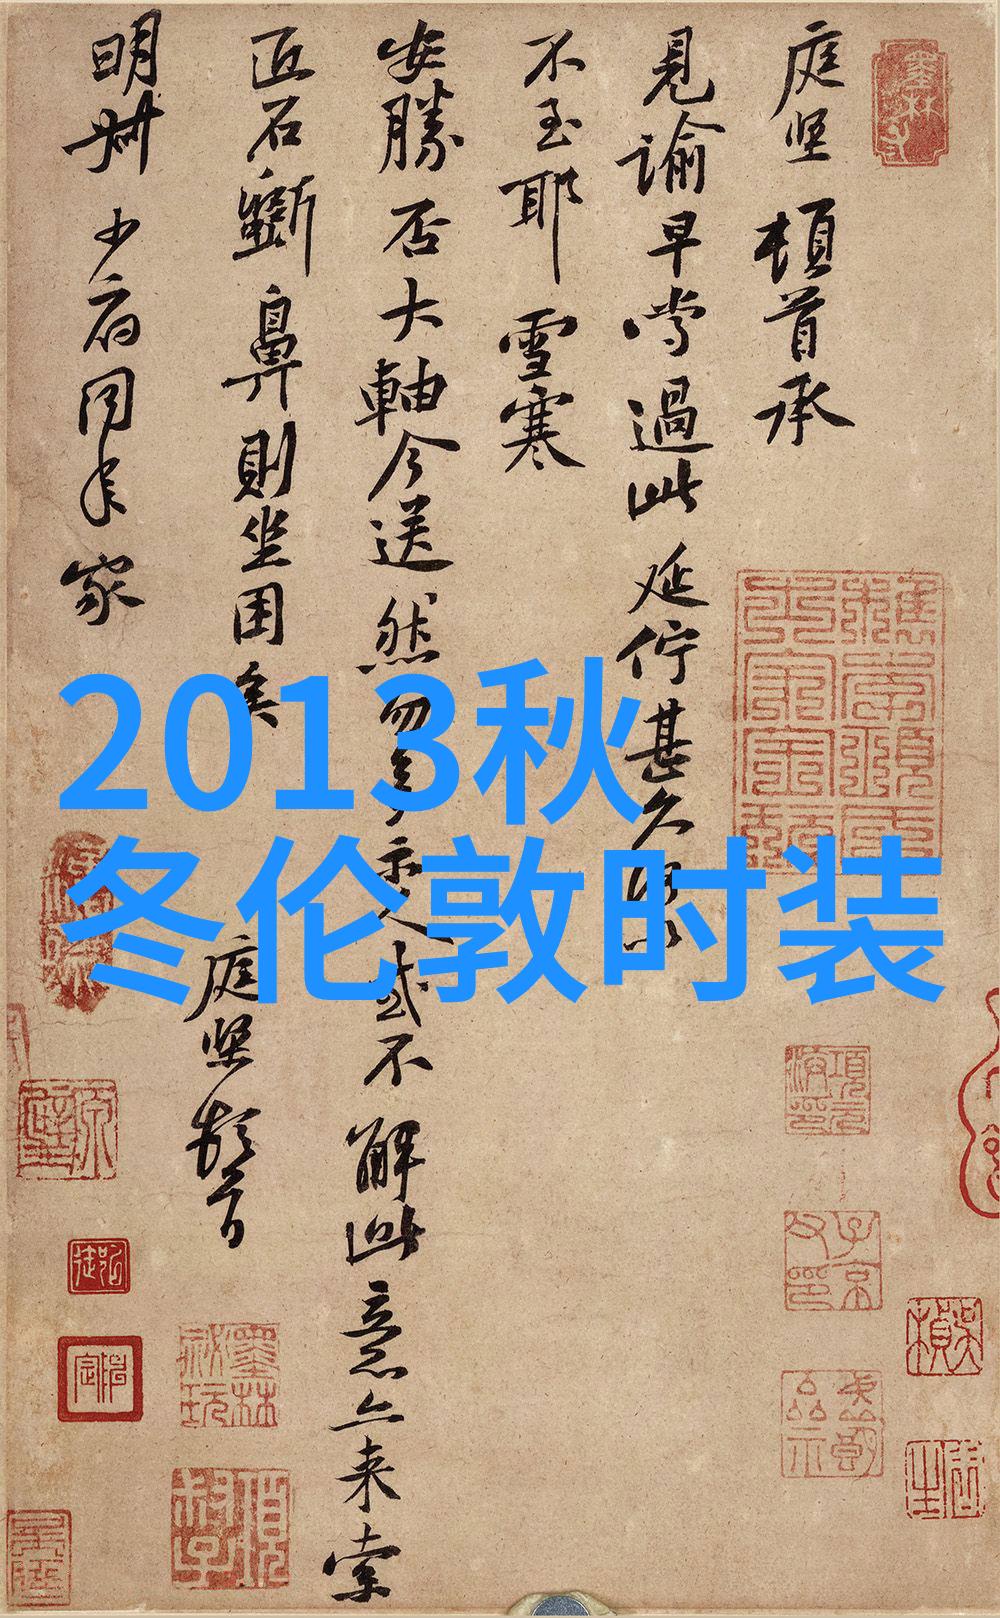 庭坚顿首承
見谕早嘗過此延佇甚久
不至耶雪寒
安勝否大軸今送然勿多示人或不解此意亦来索
匠石斲鼻則坐困矣
庭坚頓首
明叔少府同年家
2013秋
冬伦敦时装